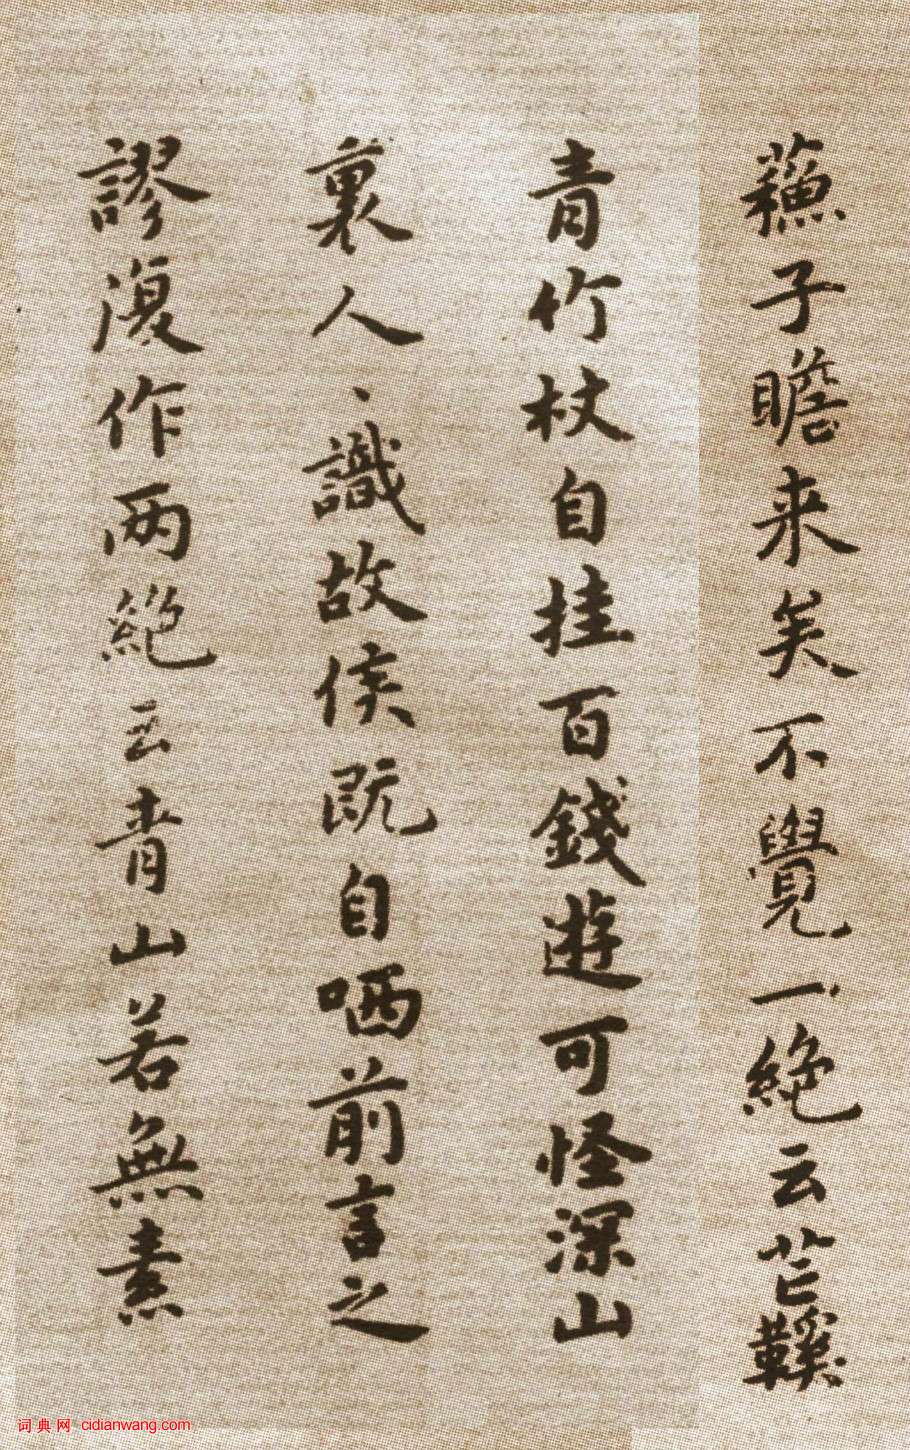 蘓子瞻来矣不覺一絶云芒鞵
青竹杖自挂百錢遊可怪深山
裏人、識故侯既自哂前言之
謬復作两絶云青山若無素
词典网 cidianwang.com